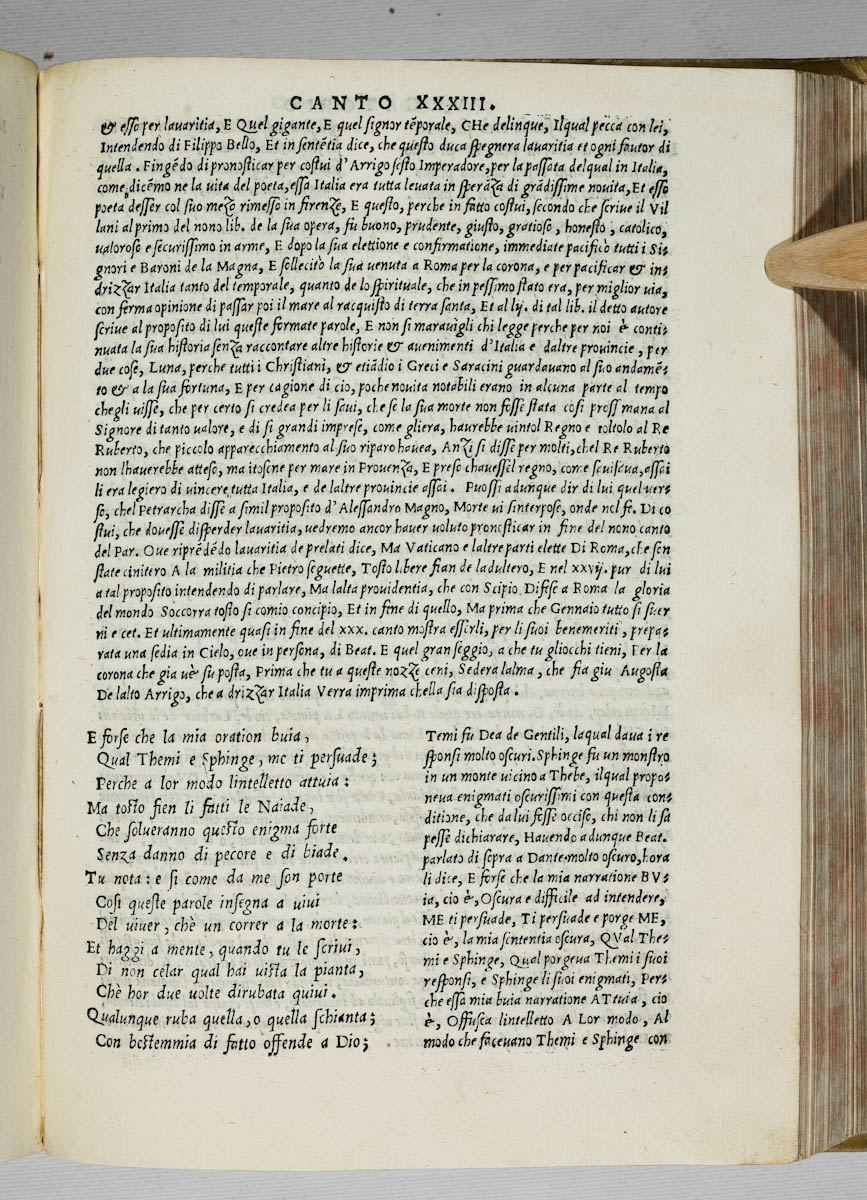 CANTO XXXIII.
& esso per lauaritia, E Quel gigante, E quel signor tẽporale, CHe delinque, Ilqual pecca con lei,
Intendendo di Filippo Bello, Et in sentẽtia dice, che questo duca spegnera lauaritia et ogni fautor di
quella. Fingẽdo di pronosticar per costui d'Arrigo sesto Imperadore, per la passata delqual in Italia,
come dicẽmo ne la uita del poeta, essa Italia era tutta leuata in sperãza di grãdissime nouita, Et esso
poeta desser col suo mezo rimesso in firenze, E questo, perche in fatto costui, secondo che scriue il Vil
lani al primo del nono lib. de la sua opera, fu buono, prudente, giusto, gratioso, honesto, catolico,
ualoroso e securissimo in arme, E dopo la sua elettione e confirmatione, immediate pacifico tutti i Si-
gnori e Baroni de la Magna, E sollecitò la sua uenuta a Roma per la corona, e per pacificar & in-
drizzar Italia tanto del temporale, quanto de lo spirituale, che in pessimo stato era, per miglior uia,
con ferma opinione di passar poi il mare al racquisto di terra santa, Et al ly. di tal lib. il detto autore
scriue al proposito di lui queste formate parole, E non si marauigli chi legge perche per noi è conti-
nuata la sua historia senza raccontare altre historie & auenimenti d'Italia e daltre prouincie, per
due cose, Luna, perche tutti i Christiani, & etiãdio i Greci e Saracini guardauano al suo andamẽ-
to & a la sua fortuna, E per cagione di cio, poche nouita notabili erano in alcuna parte al tempo
chegli uisse, che per certo si credea per li saui, che se la sua morte non fosse stata cosi prossimana al
Signore di tanto ualore, e di si grandi imprese, come gliera, haurebbe uintol Regno e toltolo al Re
Ruberto, che piccolo apparecchiamento al suo riparo hauea, Anzi si disse per molti, chel Re Ruberto
non lhauerebbe atteso, ma itosene per mare in Prouenza, E preso chauessel regno, come seuiseua, assai
li era legiero di uincere tutta Italia, e de laltre prouincie assai. Puossi adunque dir di lui quel uer-
so, chel Petrarcha disse a simil proposito d'Alessandro Magno, Morte ui sinterpose, onde nol fe. Di co
stui, che douesse disperder lauaritia, uedremo ancor hauer uoluto pronosticar in fine del nono canto
del Par. Oue riprẽdẽdo lauaritia de prelati dice, Ma Vaticano e laltre parti elette Di Roma, che son
state cimitero A la militia che Pietro seguette, Tosto libere fian de ladultero, E nel xxvij. pur di lui
a tal proposito intendendo di parlare, Ma lalta prouidentia, che con Scipio Difese a Roma la gloria
del mondo Soccorra tosto si comio concipio, Et in fine di quello, Ma prima che Gennaio tutto si suer
ni e cet. Et ultimamente quasi in fine del xxx. canto mostra esserli, per li suoi benemeriti, prepa-
rata una sedia in Cielo, oue in persona, di Beat. E quel gran seggio, a che tu gliocchi tieni, Per la
corona che gia uè su posta, Prima che tu a queste nozze ceni, Sedera lalma, che fia giu Augosta
De lalto Arrigo, che a drizzar Italia Verra imprima chella sia disposta.
E forse che la mia oration buia,
Qual Themi e Sphinge, me ti persuade;
Perche a lor modo lintelletto attuia:
Ma tosto fien li fatti le Naiade,
Che solueranno questo enigma forte
Senza danno di pecore e di biade.
Tu nota: e si come da me son porte
Cosi queste parole insegna a uiui
Del uiuer, chè un correr a la morte:
Et haggi a mente, quando tu le scriui,
Di non celar qual hai uista la pianta,
Chè hor due uolte dirubata quiui.
Qualunque ruba quella, o quella schianta;
Con bestemmia di fatto offende a Dio;
Temi fu Dea de Gentili, laqual daua i re
sponsi molto oscuri. Sphinge fu un monstro
in un monte uicino a Thebe, ilqual propo-
neua enigmati oscurissimi con questa con-
ditione, che da lui fosse occiso, chi non li sa
pesse dichiarare, Hauendo adunque Beat.
parlato di sopra a Dante molto oscuro, hora
li dice, E forse che la mia narratione BV-
ia, cio è, Oscura e difficile ad intendere,
ME ti persuade, Ti persuade e porge ME,
cio è, la mia sententia oscura, QVal The-
mi e Sphinge, Qual porgeua Themi i suoi
responsi, e Sphinge li suoi enigmati, Per-
che essa mia buia narratione ATtuia, cio
è, Offusca lintelletto A Lor modo, Al
modo che faceuano Themi e Sphinge con